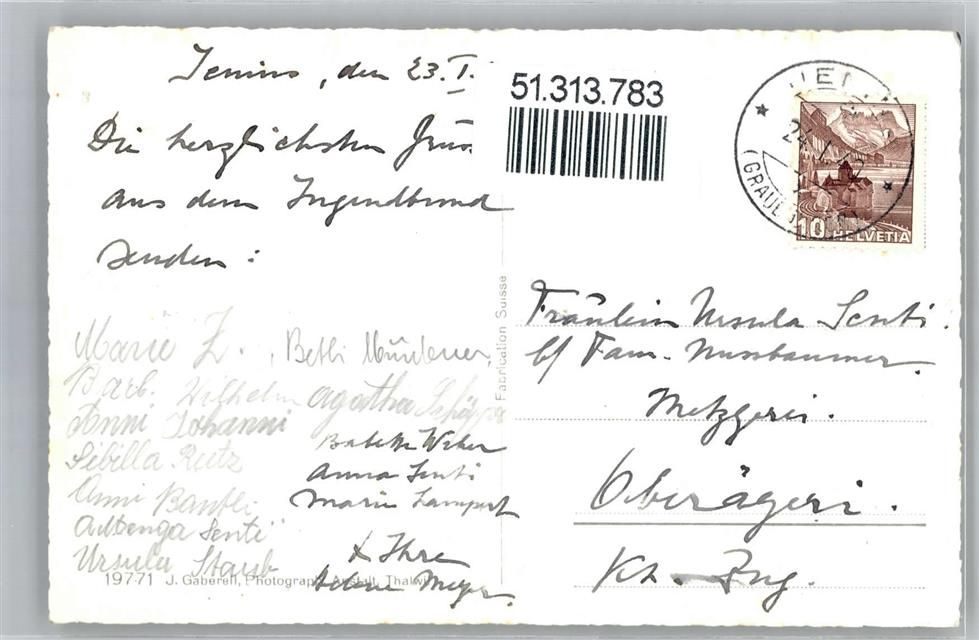 Jenins, den 23. I.
Die herzlichsten Grüsse
aus dem Jugendbund
senden:
Marie Z.
Barb. Wilhelm
Anni Johanni
Sibilla Rietz
Anni Bantli
Senti
Ursula Staub
Betli
Agatha
Babette Weber
Anna Senti
Maria Lampert
+ Ihre
Meyer.
19771 J. Gaberell, Photograph. Anstalt, Thalwil
Fabrication Suisse
51.313.783
24. I.
(GRAUB
10 HELVETIA
Fräulein Ursula Senti.
b/ Fam. Nussbaumer.
Metzgerei.
Oberägeri.
Kt. Zug.